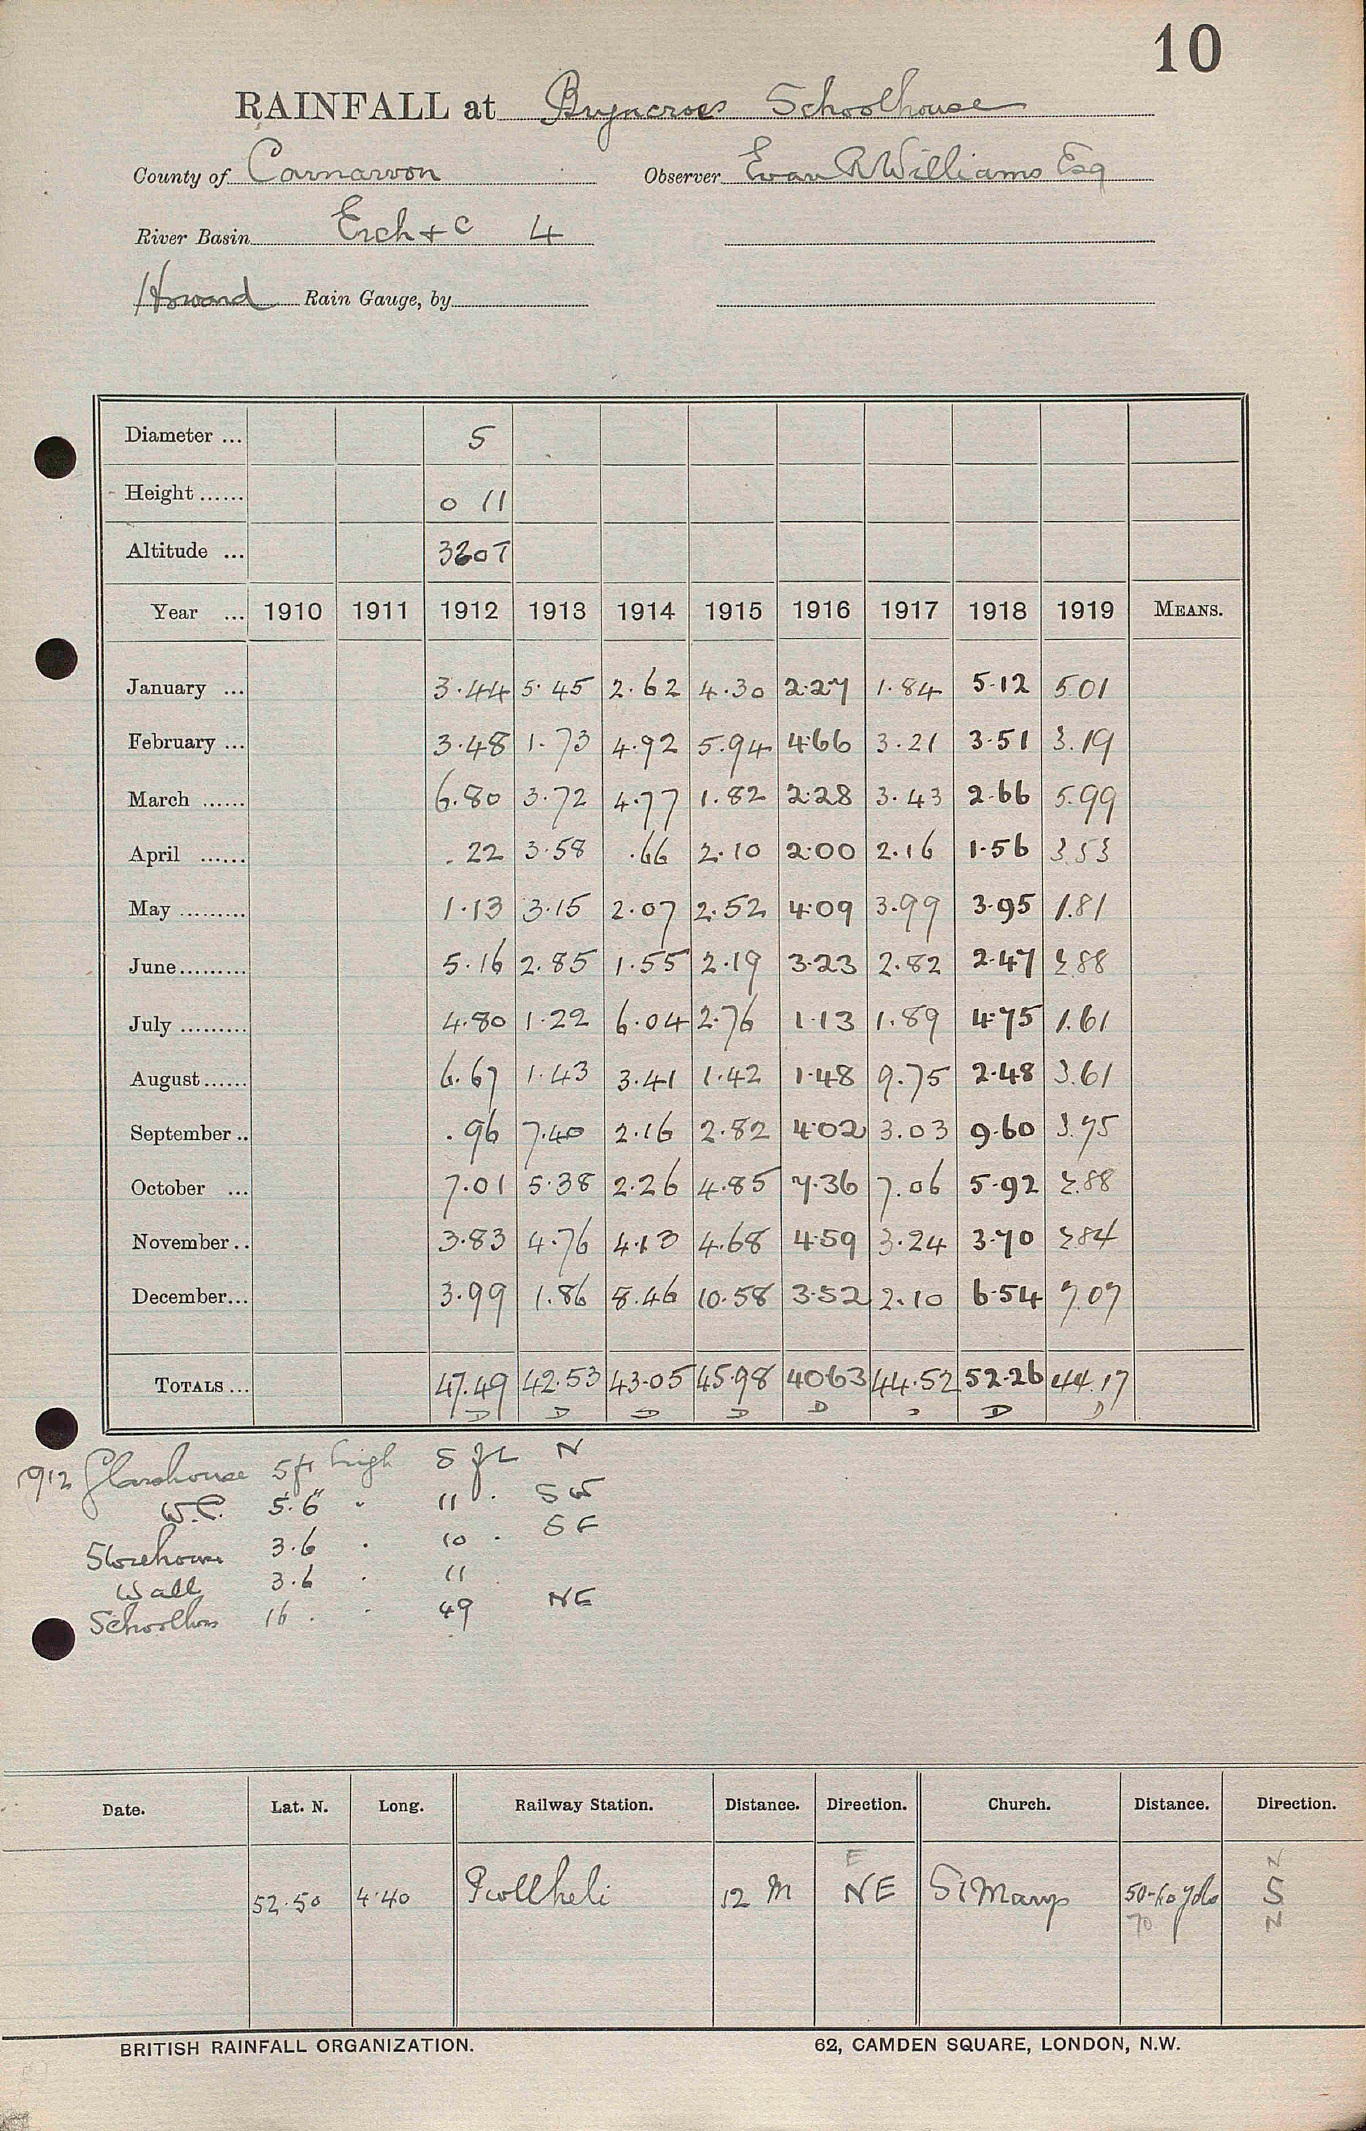 10
RAINFALL at Bryncroes Schoolhouse
County of Carnarvon Observer Evan R Williams Esq
River Basin Erch + c 4
Howard Rain Gauge, by
Diameter ... 5
Height ...... 0 11
Altitude ... 360T
Year ... 1910 1911 1912 1913 1914 1915 1916 1917 1918 1919 MEANS.
January ... 3.44 5.45 2.62 4.30 2.27 1.84 5.12 5.01
February ... 3.48 1.73 4.92 5.94 4.66 3.21 3.51 3.19
March ...... 6.80 3.72 4.77 1.82 2.28 3.43 2.66 5.99
April ...... .22 3.58 .66 2.10 2.00 2.16 1.56 3.53
May ......... 1.13 3.15 2.07 2.52 4.09 3.99 3.95 1.81
June......... 5.16 2.85 1.55 2.19 3.23 2.82 2.47 2.88
July ......... 4.80 1.22 6.04 2.76 1.13 1.89 4.75 1.61
August...... 6.67 1.43 3.41 1.42 1.48 9.75 2.48 3.61
September .. .96 7.40 2.16 2.82 4.02 3.03 9.60 3.75
October ... 7.01 5.38 2.26 4.85 7.36 7.06 5.92 2.88
November .. 3.83 4.76 4.13 4.68 4.59 3.24 3.70 2.84
December... 3.99 1.86 8.46 10.58 3.52 2.10 6.54 7.07
TOTALS ... 47.49 42.53 43.05 45.98 40.63 44.52 52.26 44.17
D D D D D D D D
1912 Glasshouse 5 ft high 8 ft N
W.C. 5.6" " 11 . SW
Storehouse 3.6 . 10 . SE
Wall 3.6 . 11
Schoolhos 16 . . 49 NE
Date. Lat. N. Long. Railway Station. Distance. Direction. Church. Distance. Direction.
E N
52.50 4.40 Pwllheli 12 M NE St Marys 50-60 yds S
70 N
BRITISH RAINFALL ORGANIZATION. 62, CAMDEN SQUARE, LONDON, N.W.